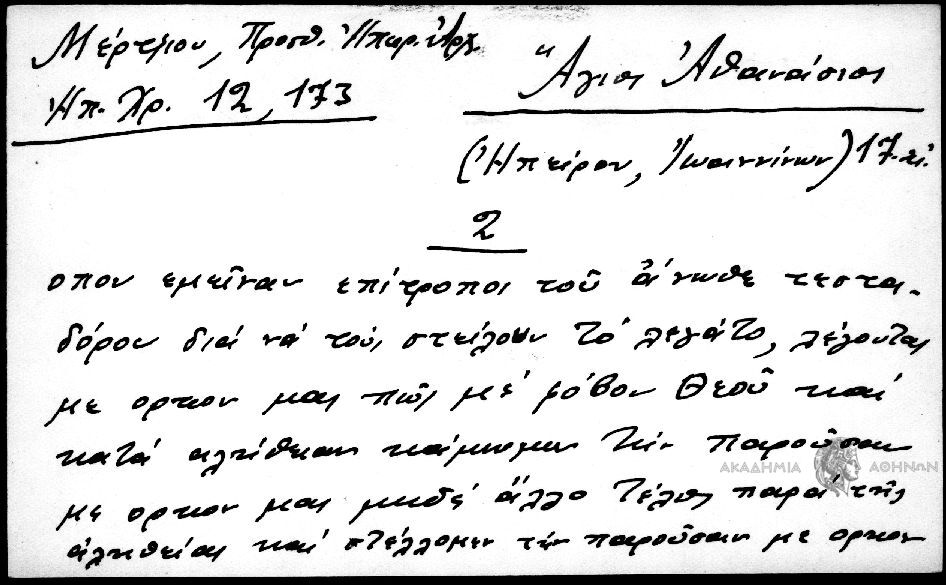 Μέρτζιου, Προσθ. Ηπειρ. Αρχ.
Ἠπ. Χρ. 12, 173
Ἅγιος Ἀθανάσιος
(Ἠπείρου, Ἰωαννίνων) 17. αἰ.
2
οπου εμεῖναν επίτροποι τοῦ ἄνωθε τεστα-
δόρου διά νά τούς στείλουν τό λεγάτο, λέγοντας
με ορκον μας πῶς μέ φόβον Θεοῦ καί
κατά αλήθειαν κάμνομεν τήν παροῦσαν
ΑΚΑΔΗΜΙΑ ΑΘΗΝΩΝ
με ορκον μας μηδέ ἄλλο τέλος παρά τῆς
ἀληθείας καί στέλλομεν τήν παροῦσαν με ορκον